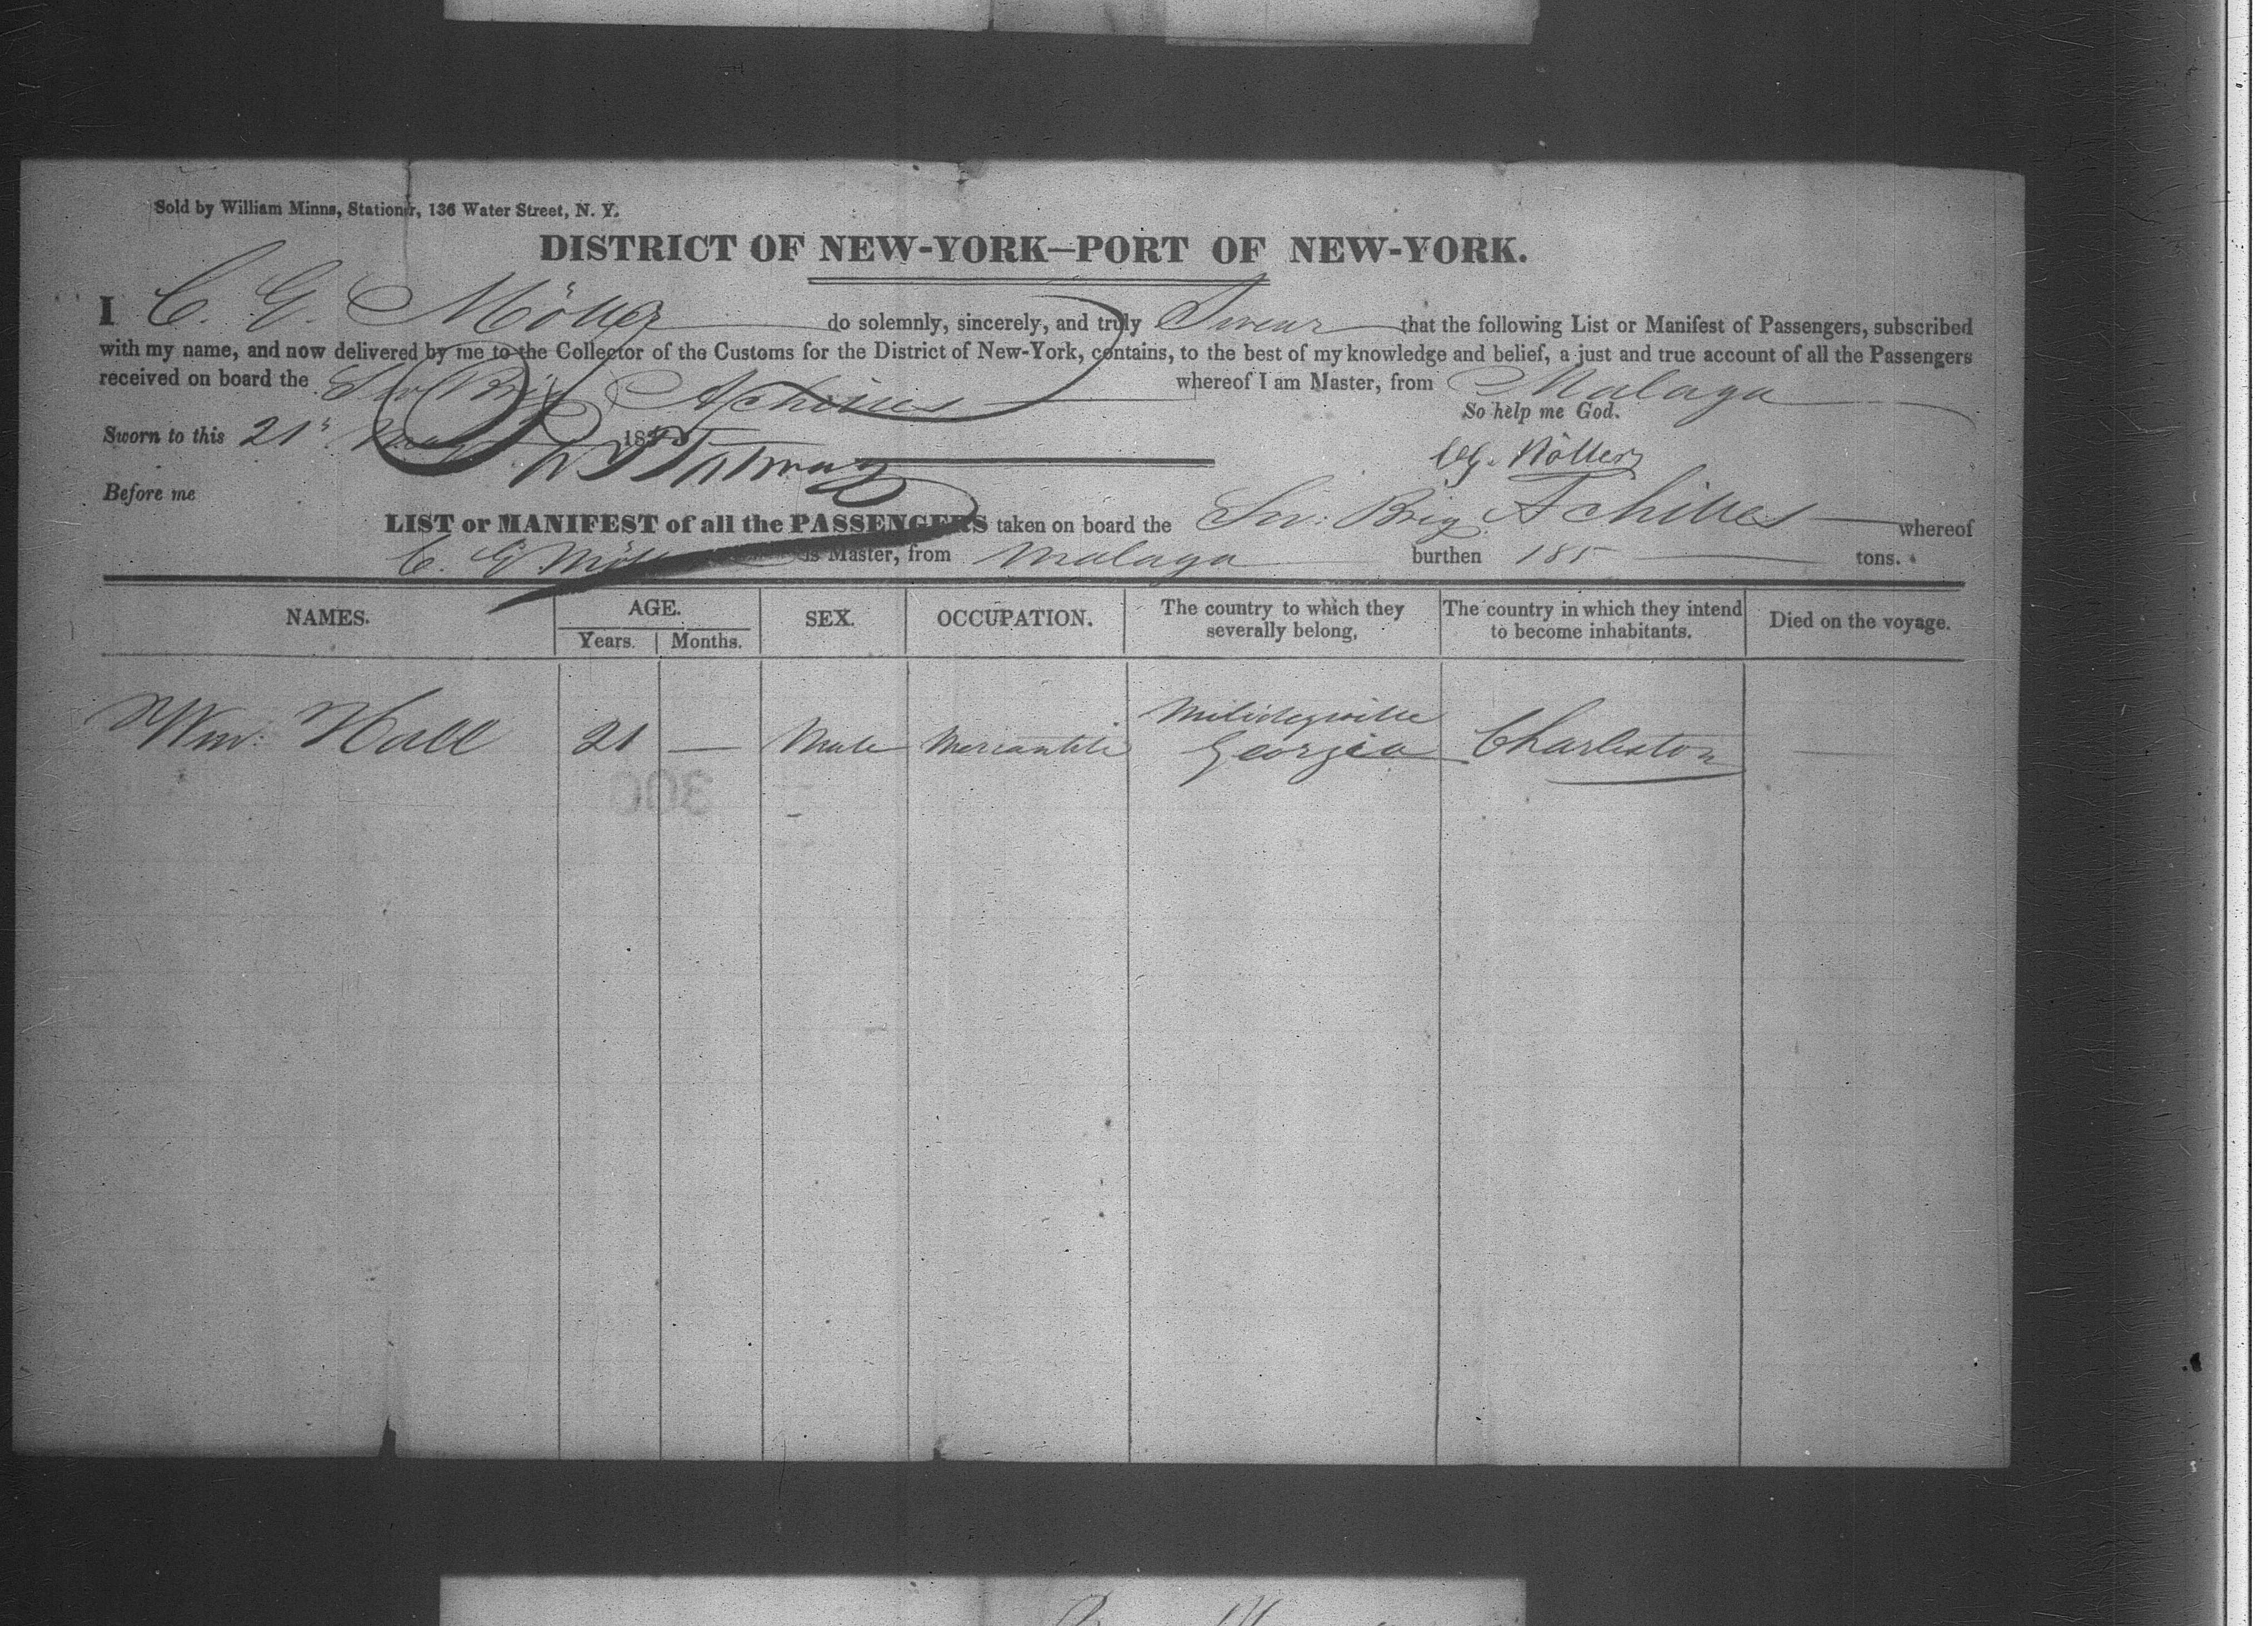 Sold by William Minns, Stationer, 136 Water Street, N. Y.
DISTRICT OF NEW-YORK—PORT OF NEW-YORK.
I C. G. Möller do solemnly, sincerely, and truly Swear that the following List or Manifest of Passengers, subscribed
with my name, and now delivered by me to the Collector of the Customs for the District of New-York, contains, to the best of my knowledge and belief, a just and true account of all the Passengers
received on board the Sw Brig Achilles whereof I am Master, from Malaga
So help me God.
Sworn to this 21s May 18
C.G. Möller
Before me
LIST or MANIFEST of all the PASSENGERS taken on board the Sw: Brig Achilles whereof
C. G Möller is Master, from Malaga burthen 185 tons.
NAMES. AGE. SEX. OCCUPATION. The country to which they severally belong, The country in which they intend to become inhabitants. Died on the voyage.
Years. Months.
Wm: Hall 21 — Male Mercantile Milidegville Georgia Charleston —
300